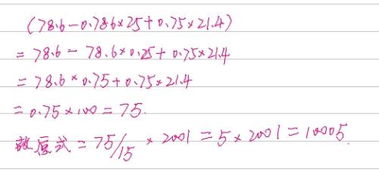 (78.6-0.786×25+0.75×21.4)
=78.6-78.6×0.25+0.75×21.4
=78.6×0.75+0.75×21.4
=0.75×100=75.
故原式=75/15×2001=5×2001=10005.